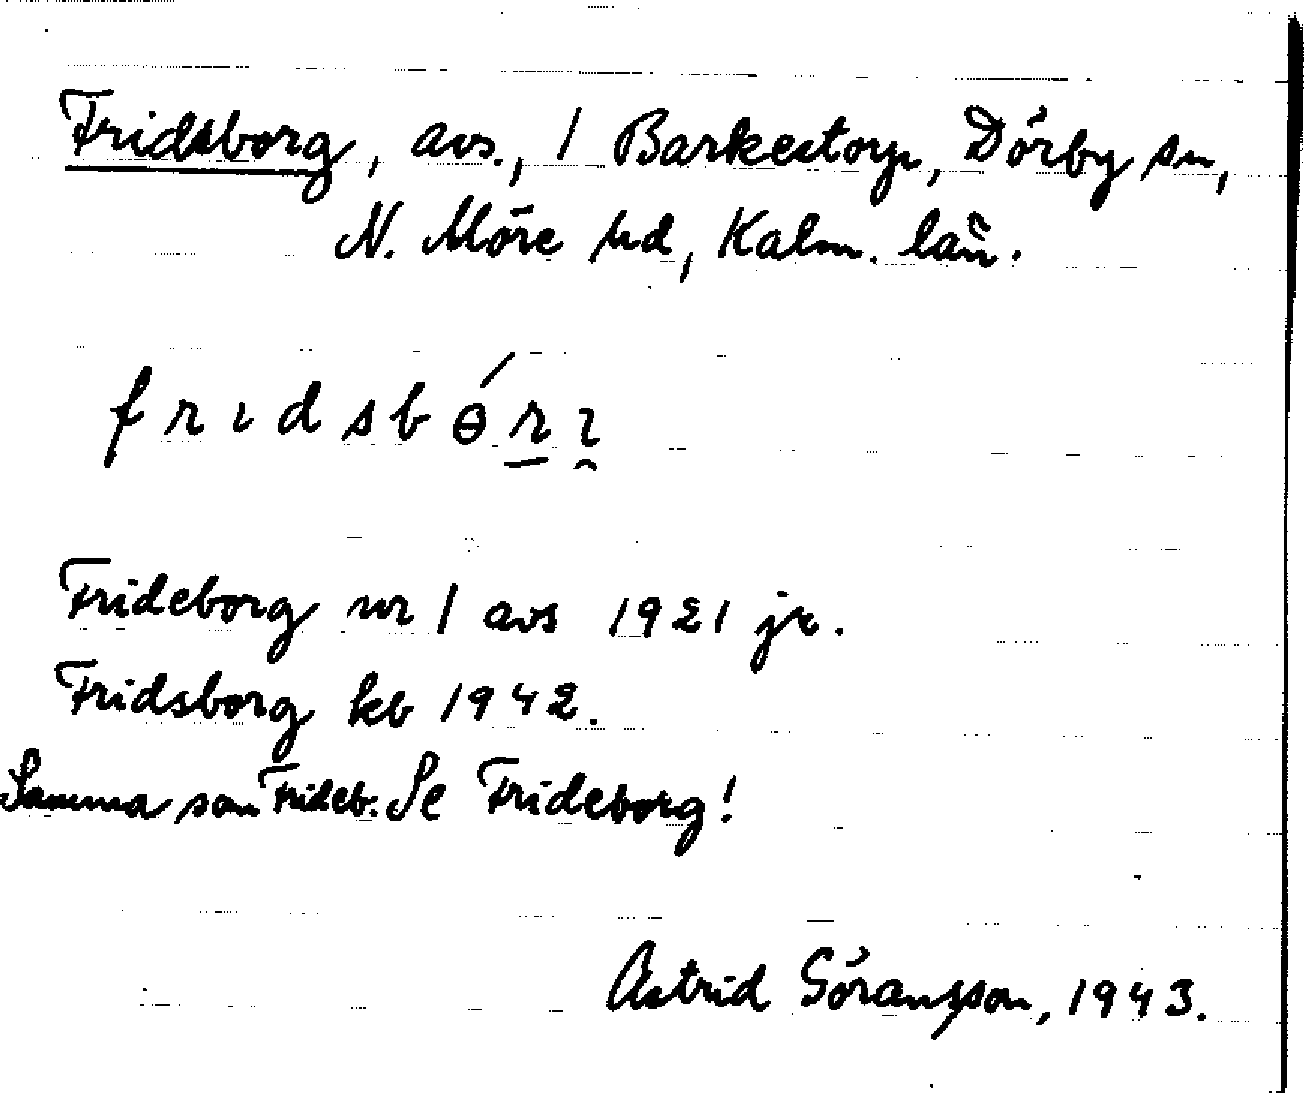 Fridsborg, avs., 1 Barkestorp, Dörby sn,
N. Möre hd, Kalm. län.
fridsbɵ́rɪ̯
Frideborg nr 1 avs 1921 jr.
Fridsborg kb 1942.
Samma som Frideb. Se Frideborg!
Astrid Göransson, 1943.